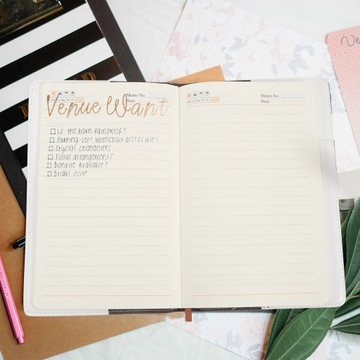 Venue Want
Memo No.
Date
□ is the barn rainproof?
□ Parking-lots wheelchair accessible?
□ Crystal chandeliers
□ Floral arrangements?
□ Bonfire available?
□ Bridal
Memo No.
Date